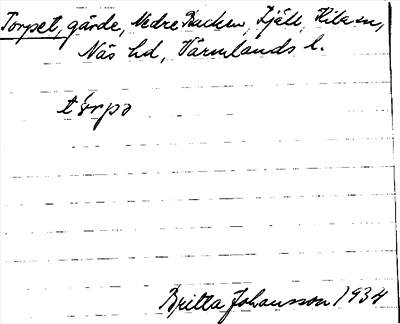 Torpet, gärde, Nedre Backen, Fjäll, Hila sn,
Näs hd, Värmlands l.
tɷrpə
Britta Johansson 1934